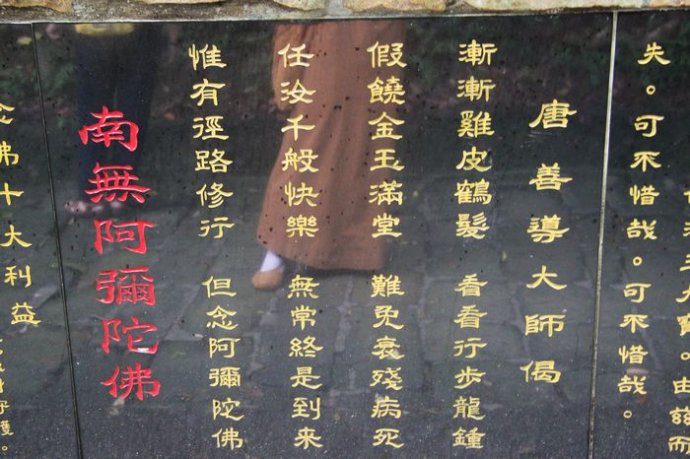 寶。由茲而
失。可不惜哉。可不惜哉。
唐善導大師偈
漸漸雞皮鶴髮 看看行步龍鍾
假饒金玉滿堂 難免衰殘病死
任汝千般快樂 無常終是到來
惟有徑路修行 但念阿彌陀佛
南無阿彌陀佛
念佛十大利益
守護。